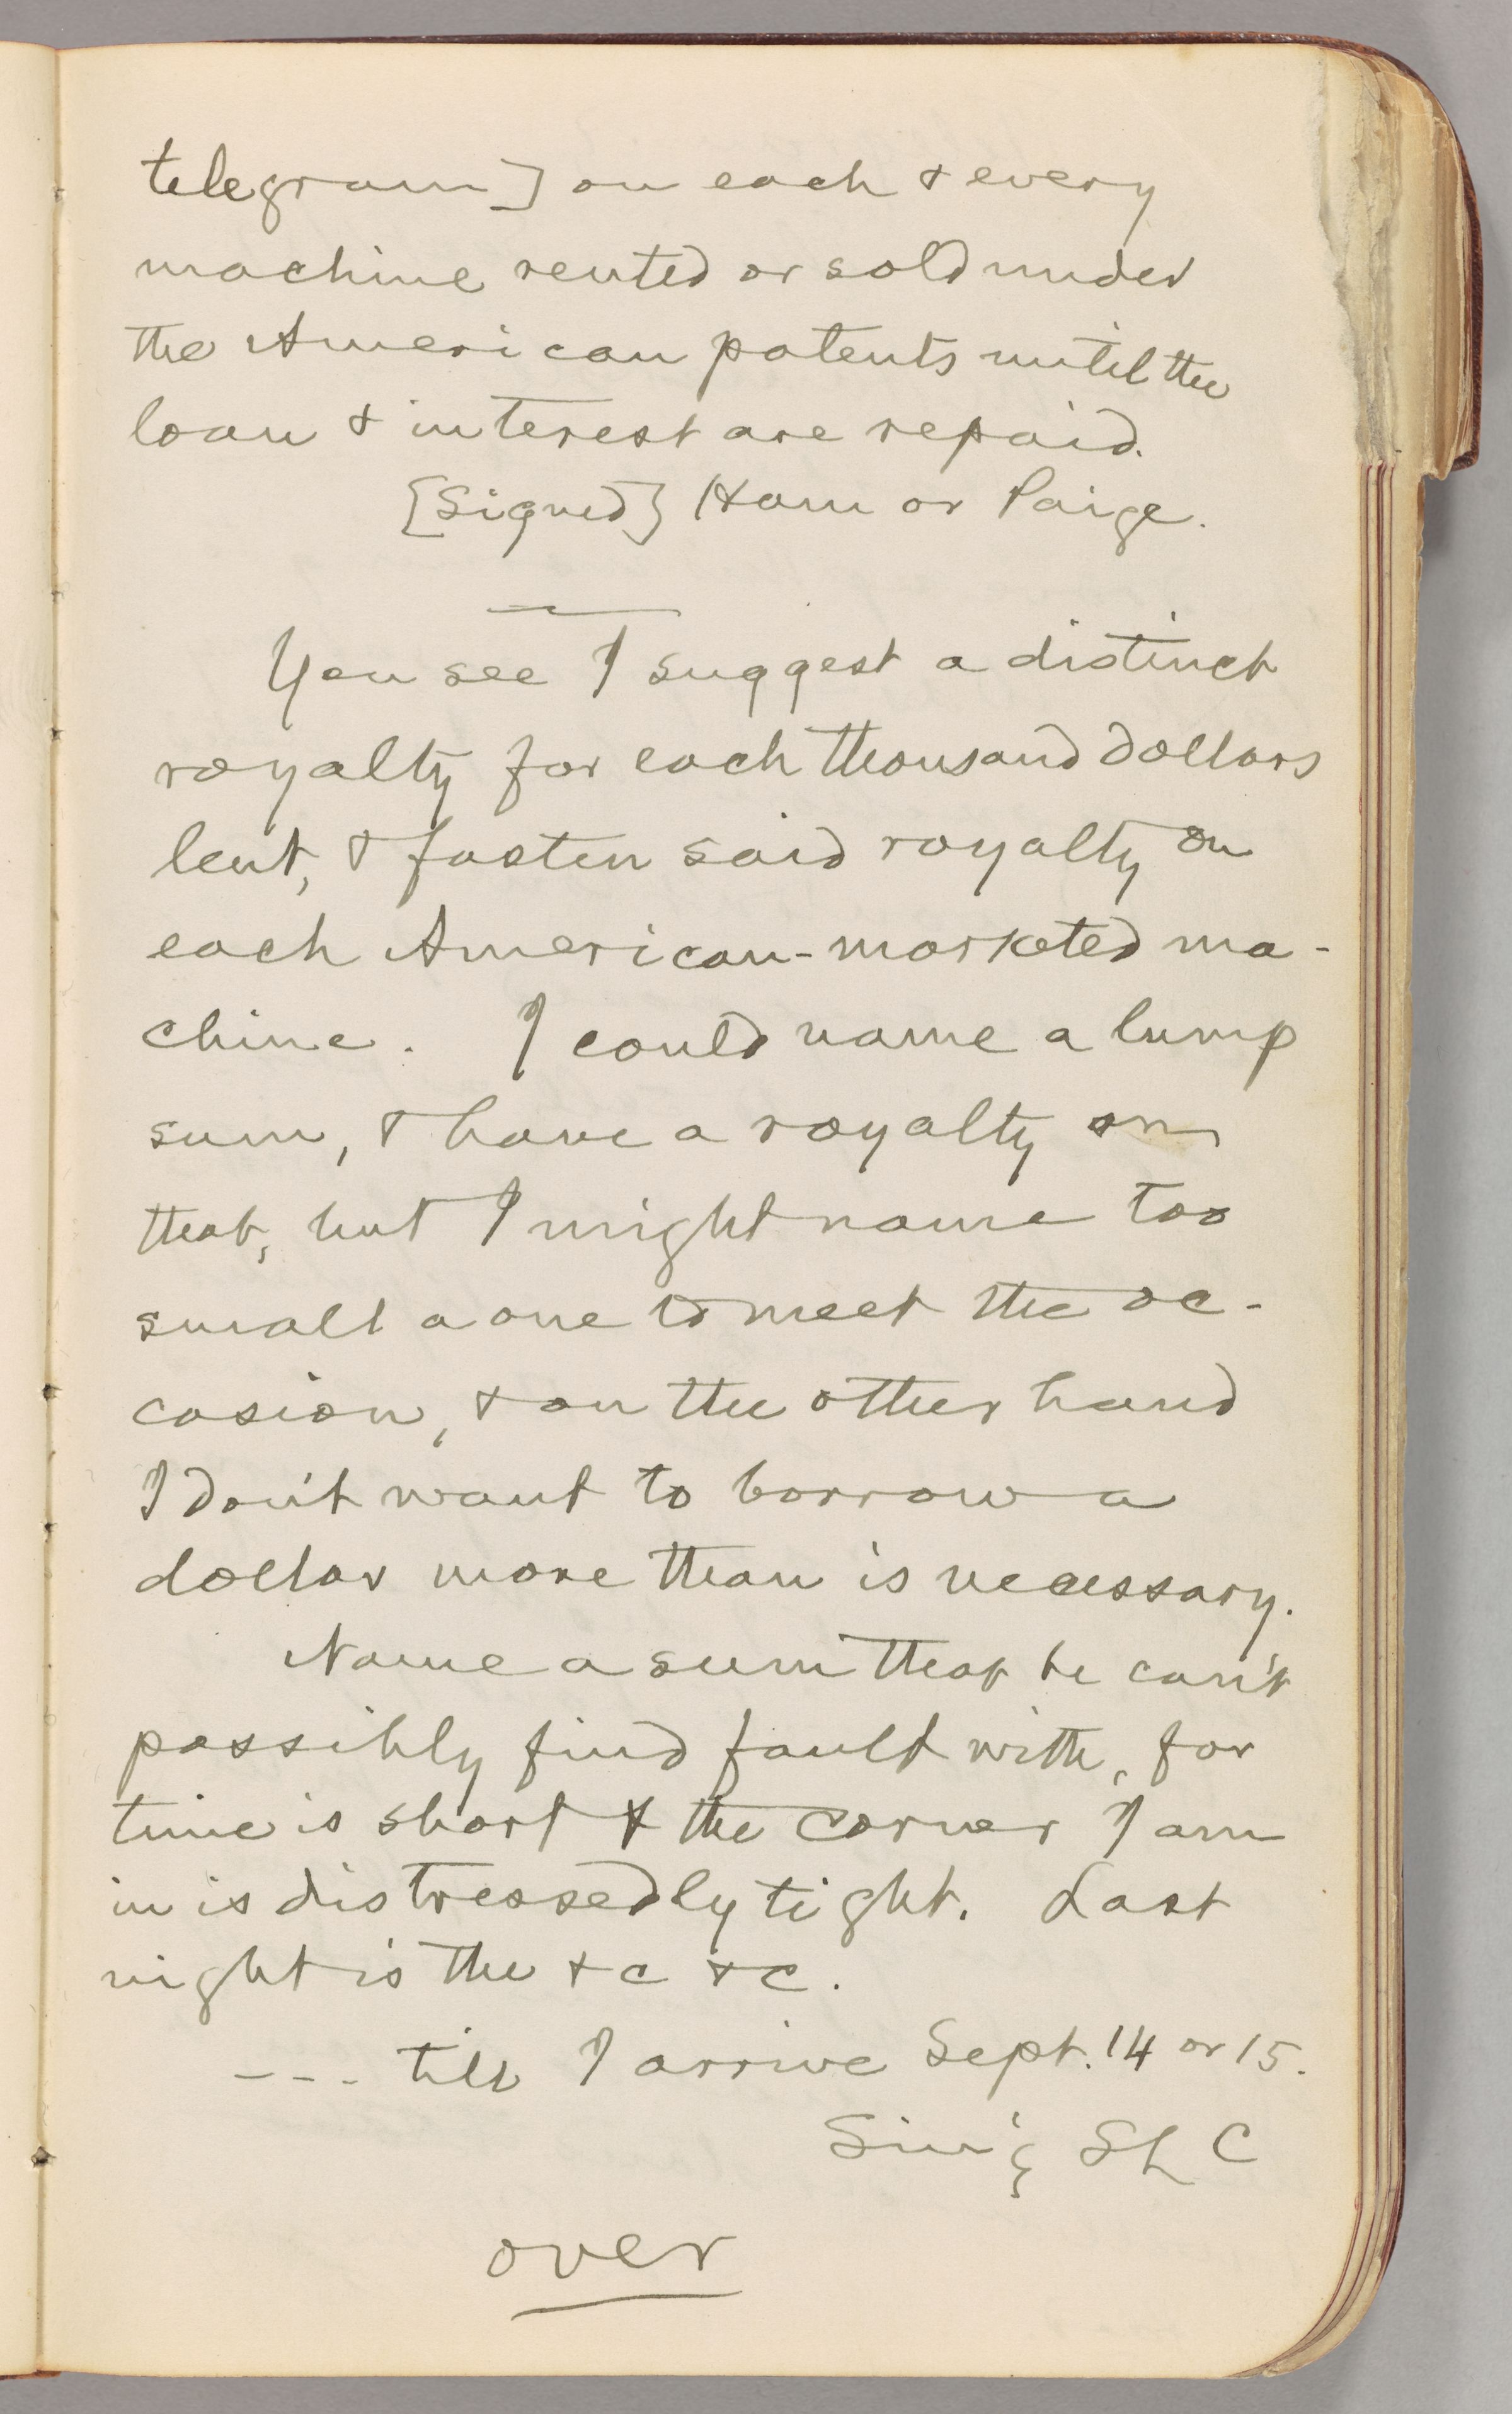 telegram] on each & every
machine rented or sold under
the American patents until the
loan & interest are repaid.
[Signed] Ham or Paige.
You see I suggest a distinct
royalty for each thousand dollars
lent, & fasten said royalty on
each American-marketed ma-
chine. I could name a lump
sum, & have a royalty on
that, but I might name too
small a one to meet the oc-
casion, & on the other hand
I don't want to borrow a
dollar more than is necessary.
Name a sum that he can't
possibly find fault with, for
time is short & the corner I am
in is distressedly tight. Last
night is the &c &c.
--- till I arrive Sept. 14 or 15.
SLC
over